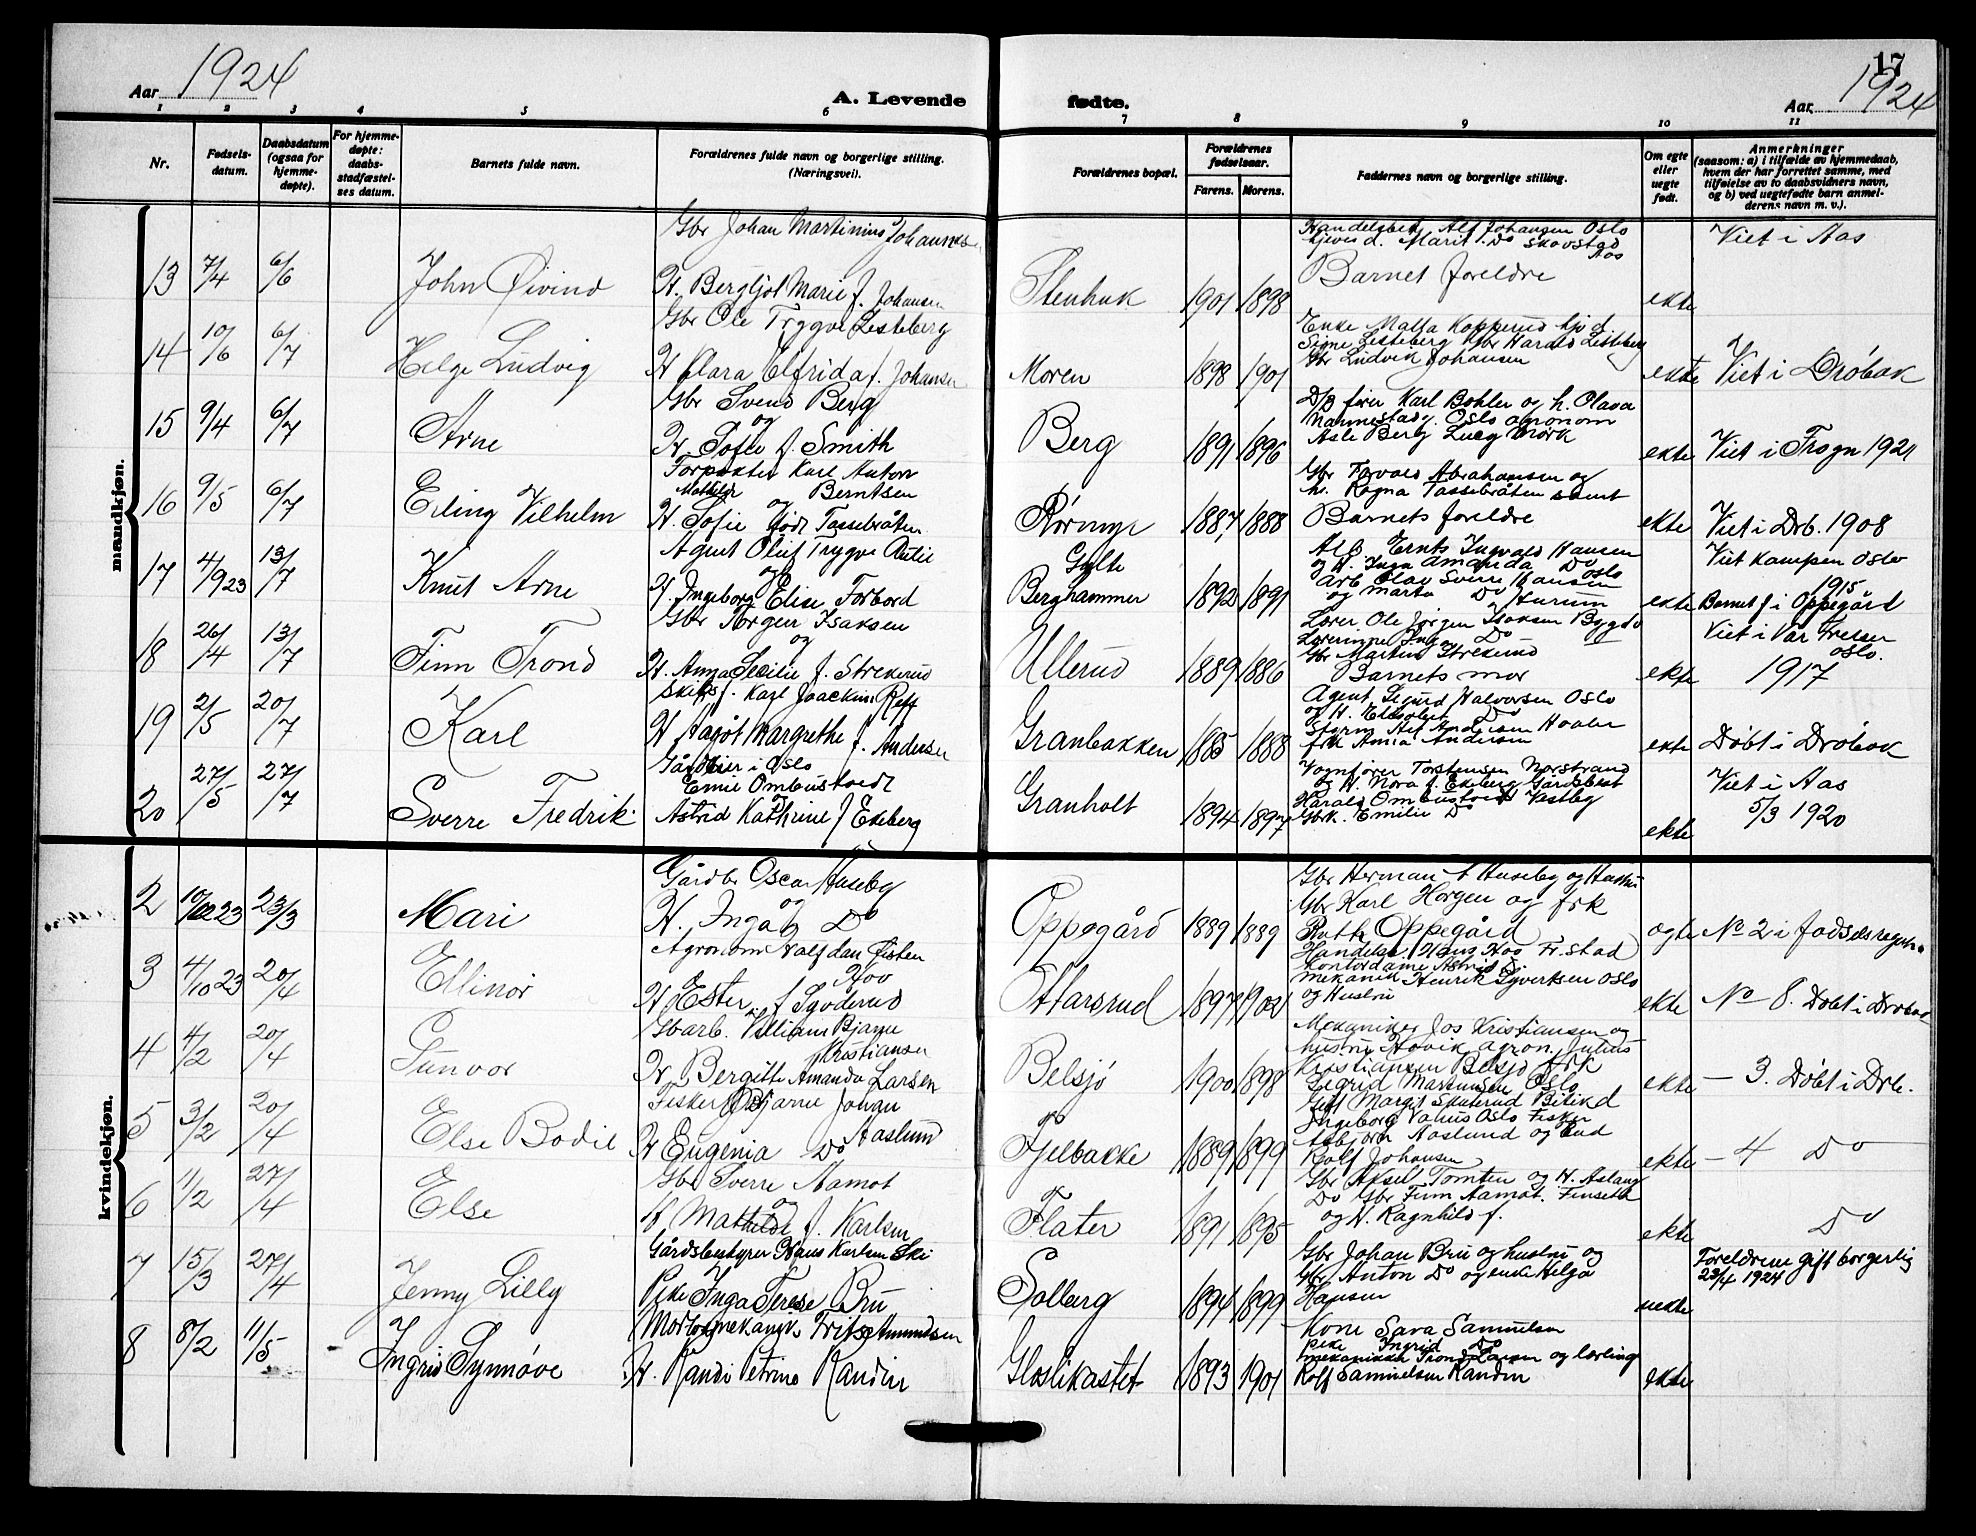 17
Aar 1924
A. Levende fødte.
Aar 1924
1 2 3 4 5 6 7 8 9 10 11
Nr.
Fødsels-datum.
Daabsdatum (ogsaa for hjemme-døpte).
For hjemme-døpte: daabs-stadfæstel-ses datum.
Barnets fulde navn.
Forældrenes fulde navn og borgerlige stilling. (Næringsvei).
Forældrenes bopæl.
Forældrenes fødselsaar.
Farens. Morens.
Faddernes navn og borgerlige stilling.
Om egte eller uegte født.
Anmerkninger
(saasom: a) i tilfælde av hjemmedaab, hvem der har forrettet samme, med tilføielse av to daabsvidners navn, og b) ved uegtefødte barn anmel-derens navn m. v.).
mandkjøn.
13 7/4 6/6 John Øivind
Gbr Johan Martinius Johansen
H. Bergljot Marie f. Johansen
Stenhuk 1901 1898
Handelsbet. Alf Johansen Oslo
hjevsd. Marit Do Skovstad Aas
Barnet foreldre
ekte
Viet i Aas
14 10/6 6/7 Helge Ludvig
Gbr Ole Trygve Listeberg
H Clara Elfrida f. Johansen
Moren 1898 1901
Enke Matta Kopperud hjd
Signe Listeberg Gbr Harald Listeberg
Gbr Ludvik Johansen
ekte Viet i Drøbak
15 9/4 6/7 Arne
Gbr Svend Berg
og
H. Sofie f. Smith
Berg 1891 1896
D/B fører Karl Bohler og h. Olava
Nannestadg. Oslo agronom
Asle Berg Lucy Mörk
ekte Viet i Frogn 1921
16 9/5 6/7 Erling Vilhelm
Forpakter Karl Anton
Mathilde Berntsen
og
H. Sofie født Tassebråten
Rörmyr 1887 1888
Gbr Torvald Abrahamsen og
h. Ragna Tassebråten samt
Barnets foreldre
ekte Viet i Drb. 1908
17 4/9 23 13/7 Knut Arne
Agent Oluf Trygve
og
H. Ingeborg Elise Forbord
Gylte
Berghammer 1892 1891
Arb Ernts Ingvald Hansen
og H. Inga Amanda Do Oslo
Arb Olav Sverre Hansen
og Marta Do Hurum
ekte
Viet Kampen Oslo
1915
Barnet f i Oppegård
18 26/4 13/7 Finn Trond
Gbr Torgeir Isaksen
og
H. Anna Cecilie f. Strekerud
Ullerud 1889 1886
Lærer Ole Jørgen Isaksen Bygdö
Lærerinne Inga Do
Gbr Martin
Barnets mor
ekte
Viet i Vår Frelser
Oslo.
1917
19 2/5 20/7 Karl
Skibsf. Karl Joackim Reff
H Aagot Margrethe f. Andersen
Granbakken 1885 1888
Agent Sigurd Halvorsen Oslo
og H. Do
Styrm Alf Andersen Hvaler
frk Anna Andersen
ekte Döbt i Dröbak
20 27/5 27/7 Sverre Fredrik
Gårdbruker i Oslo
Emil Ombustvedt
Astrid Kathrine f Ekeberg
Granholt 1894 1897
Vognfører Torstensen Norstrand
og H. Nora f. Ekeberg Gårdsbest
Harald Ombustvedt Vestby
Gbrk. Emilie Do
ekte
Viet i Aas
5/3 1920
kvindekjøn.
2 10/12 23 23/3 Mari
Gårdbr Oscar Huseby
og
H. Inga Do
Oppegård 1889 1889
Gbr Herman Huseby og Hustru
Gbr Karl Horgen og frk
Ruth Oppegård
egte No 2 i fødselsregistr.
3 4/10 23 20/4 Ellinor
Agronom Halfdan Øisten
Hov
H Ester f Sgoderud
Harsrud 1897 1902
Handelsb. Hans Hov Fr.stad
Kontordame Astrid Do
Mekanik Henrik Syvertsen Oslo
og Hustru
ekte No 8. Döbt i Dröbak
4 4/2 20/4 Gunvor
Gbarb. Villiam Bjarne
Kristiansen
H Bergitte Amanda Larsen
Belsjö 1900 1898
Mekaniker Jos Kristiansen og
hustru Høvik agron. Julius
Kristiansen Belsjö frk
Sigrid Martinsen Oslo
ekte - 3. Döbt i Drb.
5 3/2 20/4 Else Bodil
Fisker Bjarne Johan
Aaslund
H Eugenia Do
Fjelbakke 1889 1899
Gift Margit Skuterud
Ingeborg Oslo Fisker
Asbjörn Aaslund og
Rolf Johansen
ekte - 4 Do
6 11/2 27/4 Else
Gbr Sverre Aamot
og
H Mathilde f. Karlsen
Flater 1891 1895
Gbr Aksel Tomten og H. Aslaug
Do Gbr Finn Aamot.
og H. Ragnhild f.
ekte Do
7 15/3 27/4 Jenny Lilly
Gårdsbestyrer Hans Karlsen Ski
Pike Inga Terese Bru
Solberg 1894 1899
Gbr Johan Bru og hustru og
Gbr. Anton Do og enke Helga
Hansen
uekte
Foreldrene gift borgerlig
23/4 1924
8 8/2 11/5 Ingrid Synnöve
Motormekanik. Fritz Amundsen
H. Randi Petrine Randin
Glaslikastet 1893 1901
Kone Sara Samuelsen
Pike Ingrid Do
Mekanikker Trond Larsen og lærling
Rolf Samuelsen Randin
ekte